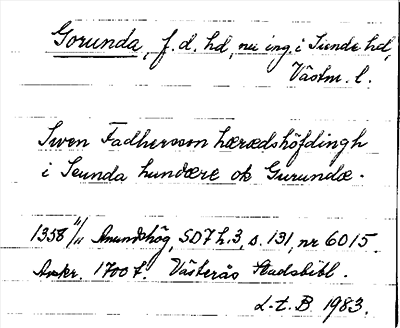 Gorunda, f.d. hd, nu ing. i Siende hd,
Västm. l.
Swen Fadhersson hærædshöfdingh
i Seunda hundære ok Gurundæ.
1358 4/11 Anundshög, SD 7 h. 3, s. 131, nr 6015.
Avskr. 1700 t. Västerås Stadsbibl.
L.t.B 1983.